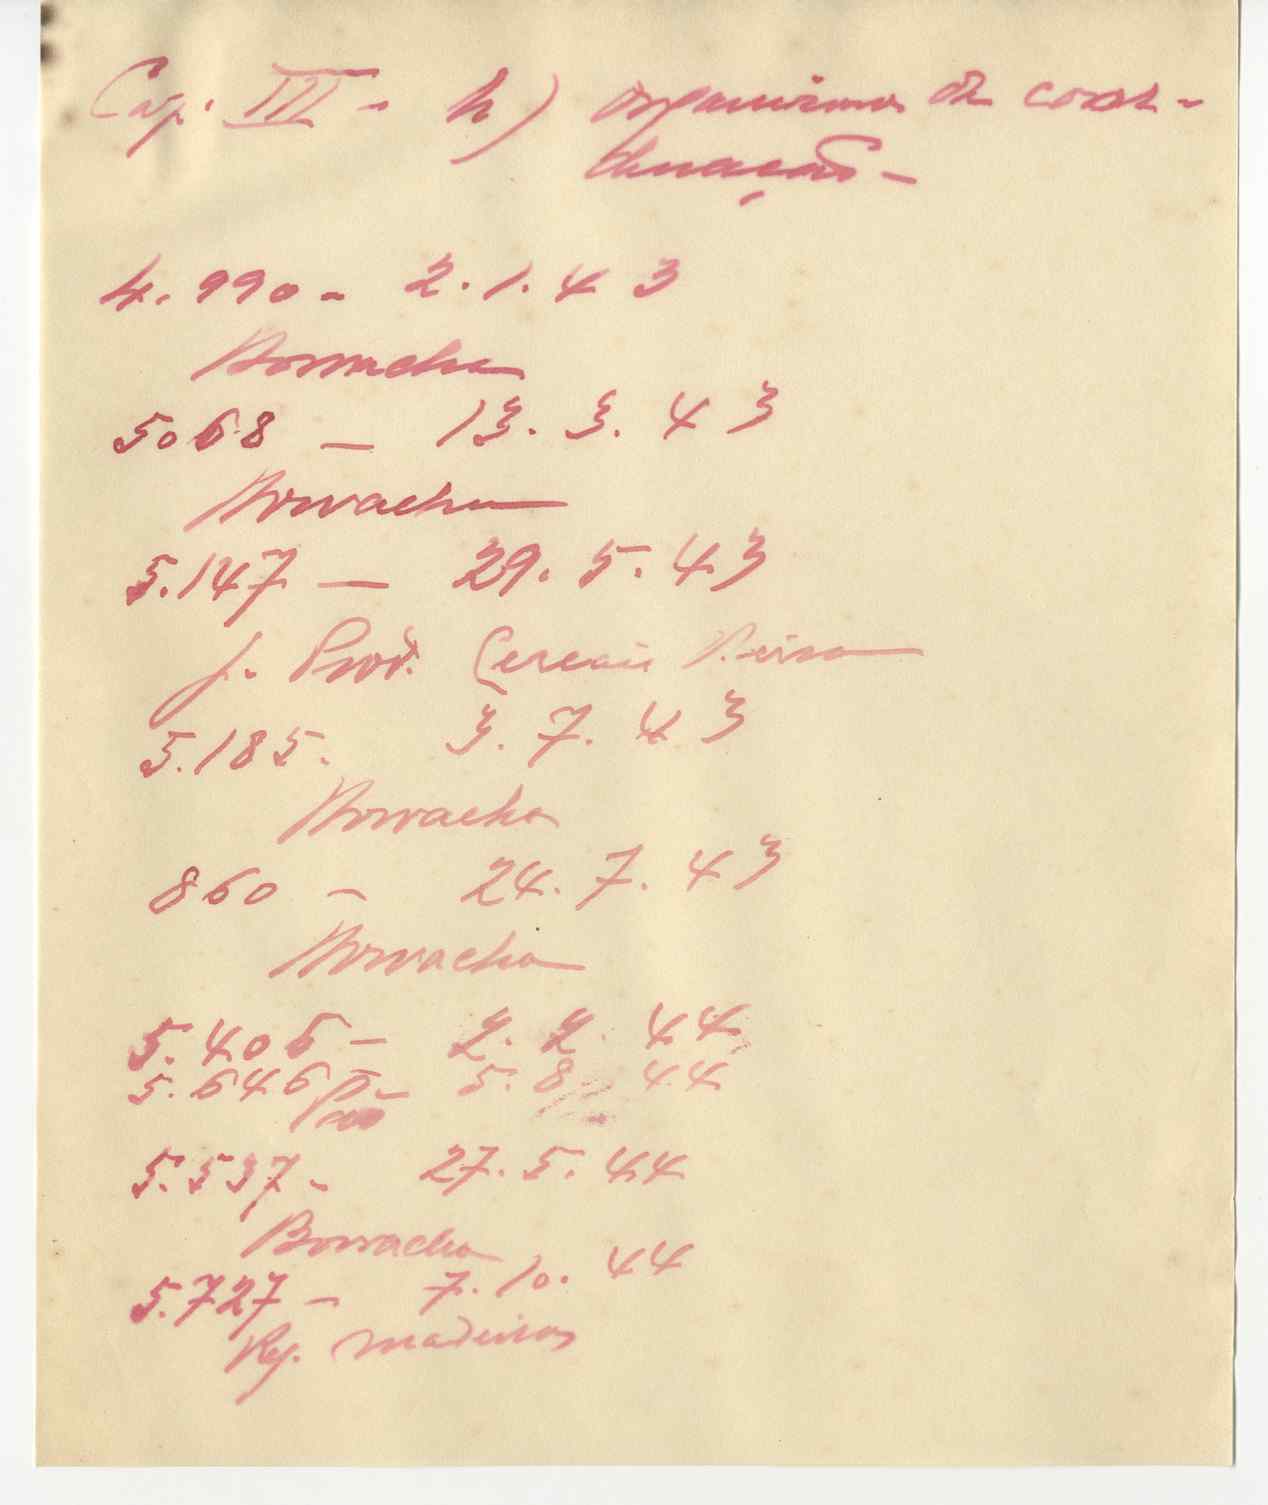 Cap. III - h) organismos de coor-
denação -
4.990 - 2.1.43
Borracha
5068 - 13.3.43
Borracha
5.147 - 29.5.43
J. Prod. Cereais
5.185. 3.7.43
Borracha
860 - 24.7.43
Borracha
5.406 - 2.2.44
5.646 - 5.8.44
5.537 - 27.5.44
Borracha
5.727 - 7.10.44
Reg. madeiras